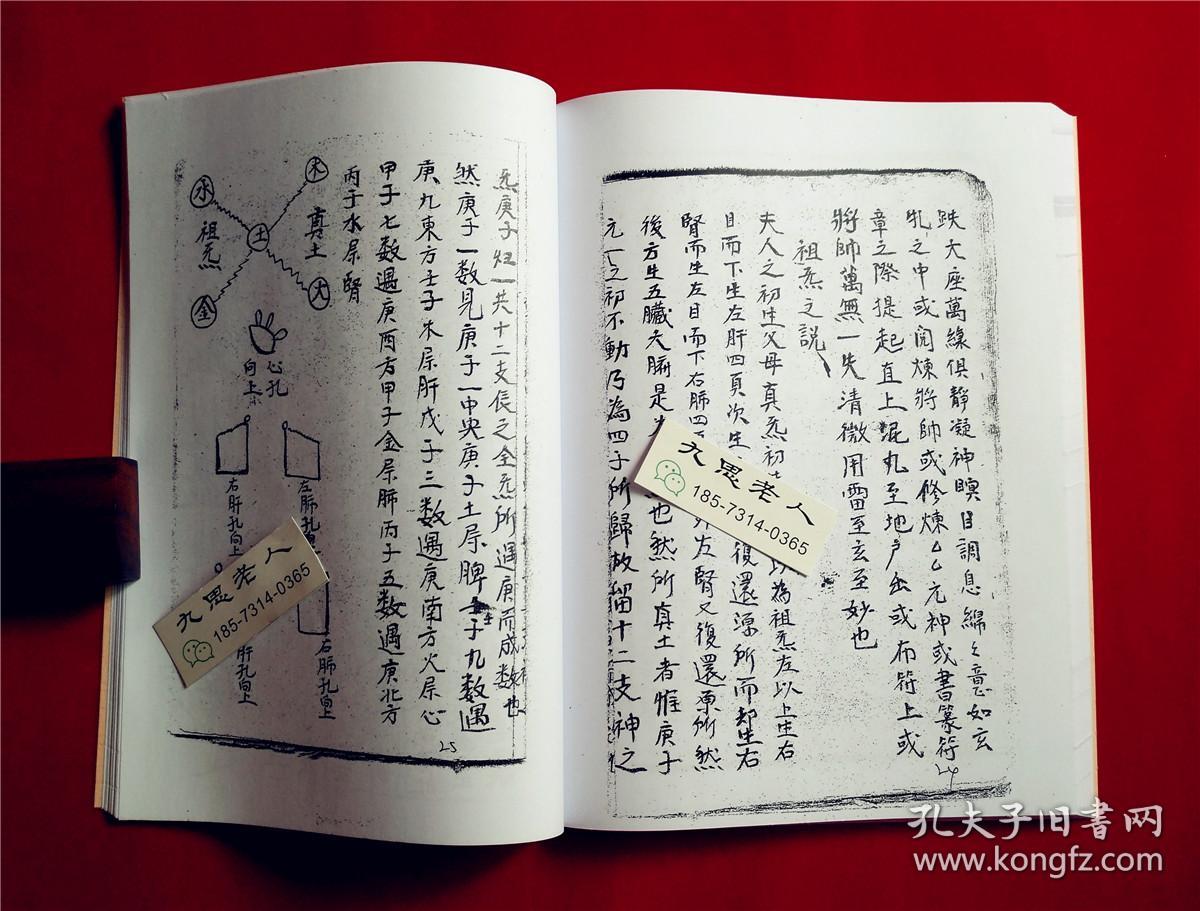 趺大座萬緣俱靜凝神瞑目調息綿々意如玄
牝之中或闭煉將帥或修煉乙乙元神或書篆符
章之際提起直上崑丸至地户出或布符上或
將帥萬無一失清微用雷至玄至妙也
祖炁之說
夫人之初生父母真炁初
以為祖炁左以上生右
目而下生左肝四頁次生
復還源所而却生右
腎而生左目而下右肺四
左腎又復還原所然
後方生五臟六腑是
也然所真土者惟庚子
元一之初不動乃為四子所歸故留十二支神之
24
炁庚子
一共十二支辰之全炁所遇庚而成数也
然庚子一数見庚子一中央庚子土屬脾
子九数遇
庚九東方壬子木屬肝戊子三数遇庚南方火屬心
甲子七数遇庚西方甲子金屬肺丙子五数遇庚北方
丙子水屬腎
木
水
真土
土
祖炁
火
金
心孔
向上
左肺孔
右肝孔向上
右肺孔向上
肝孔向上
25
九思老人
185-7314-0365
九思老人
185-7314-0365
孔夫子旧書网
www.kongfz.com